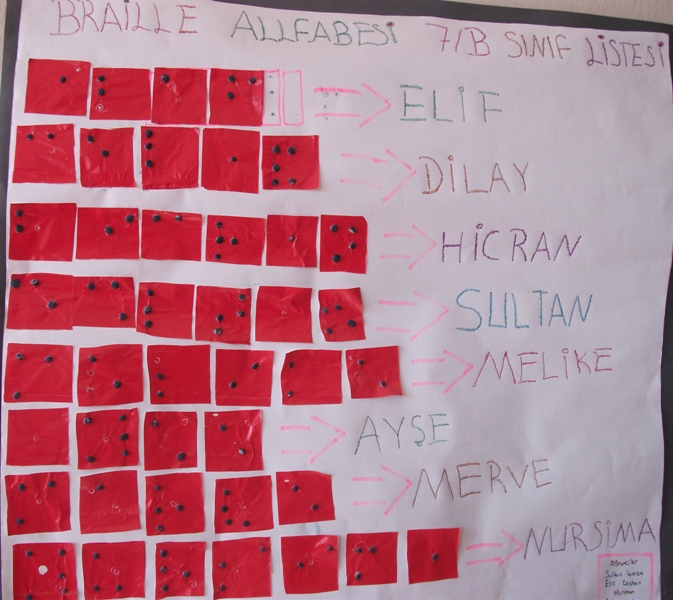 BRAILLE ALLFABESİ 7/B SINIF LİSTESİ
ELİF
DİLAY
HİCRAN
SULTAN
MELİKE
AYŞE
MERVE
NURSİMA
Öğrenciler
Sultan
Elif